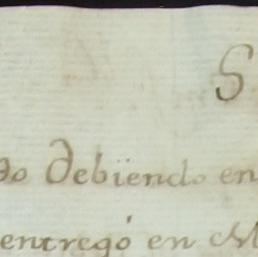 S
do debiendo en
entregó en M